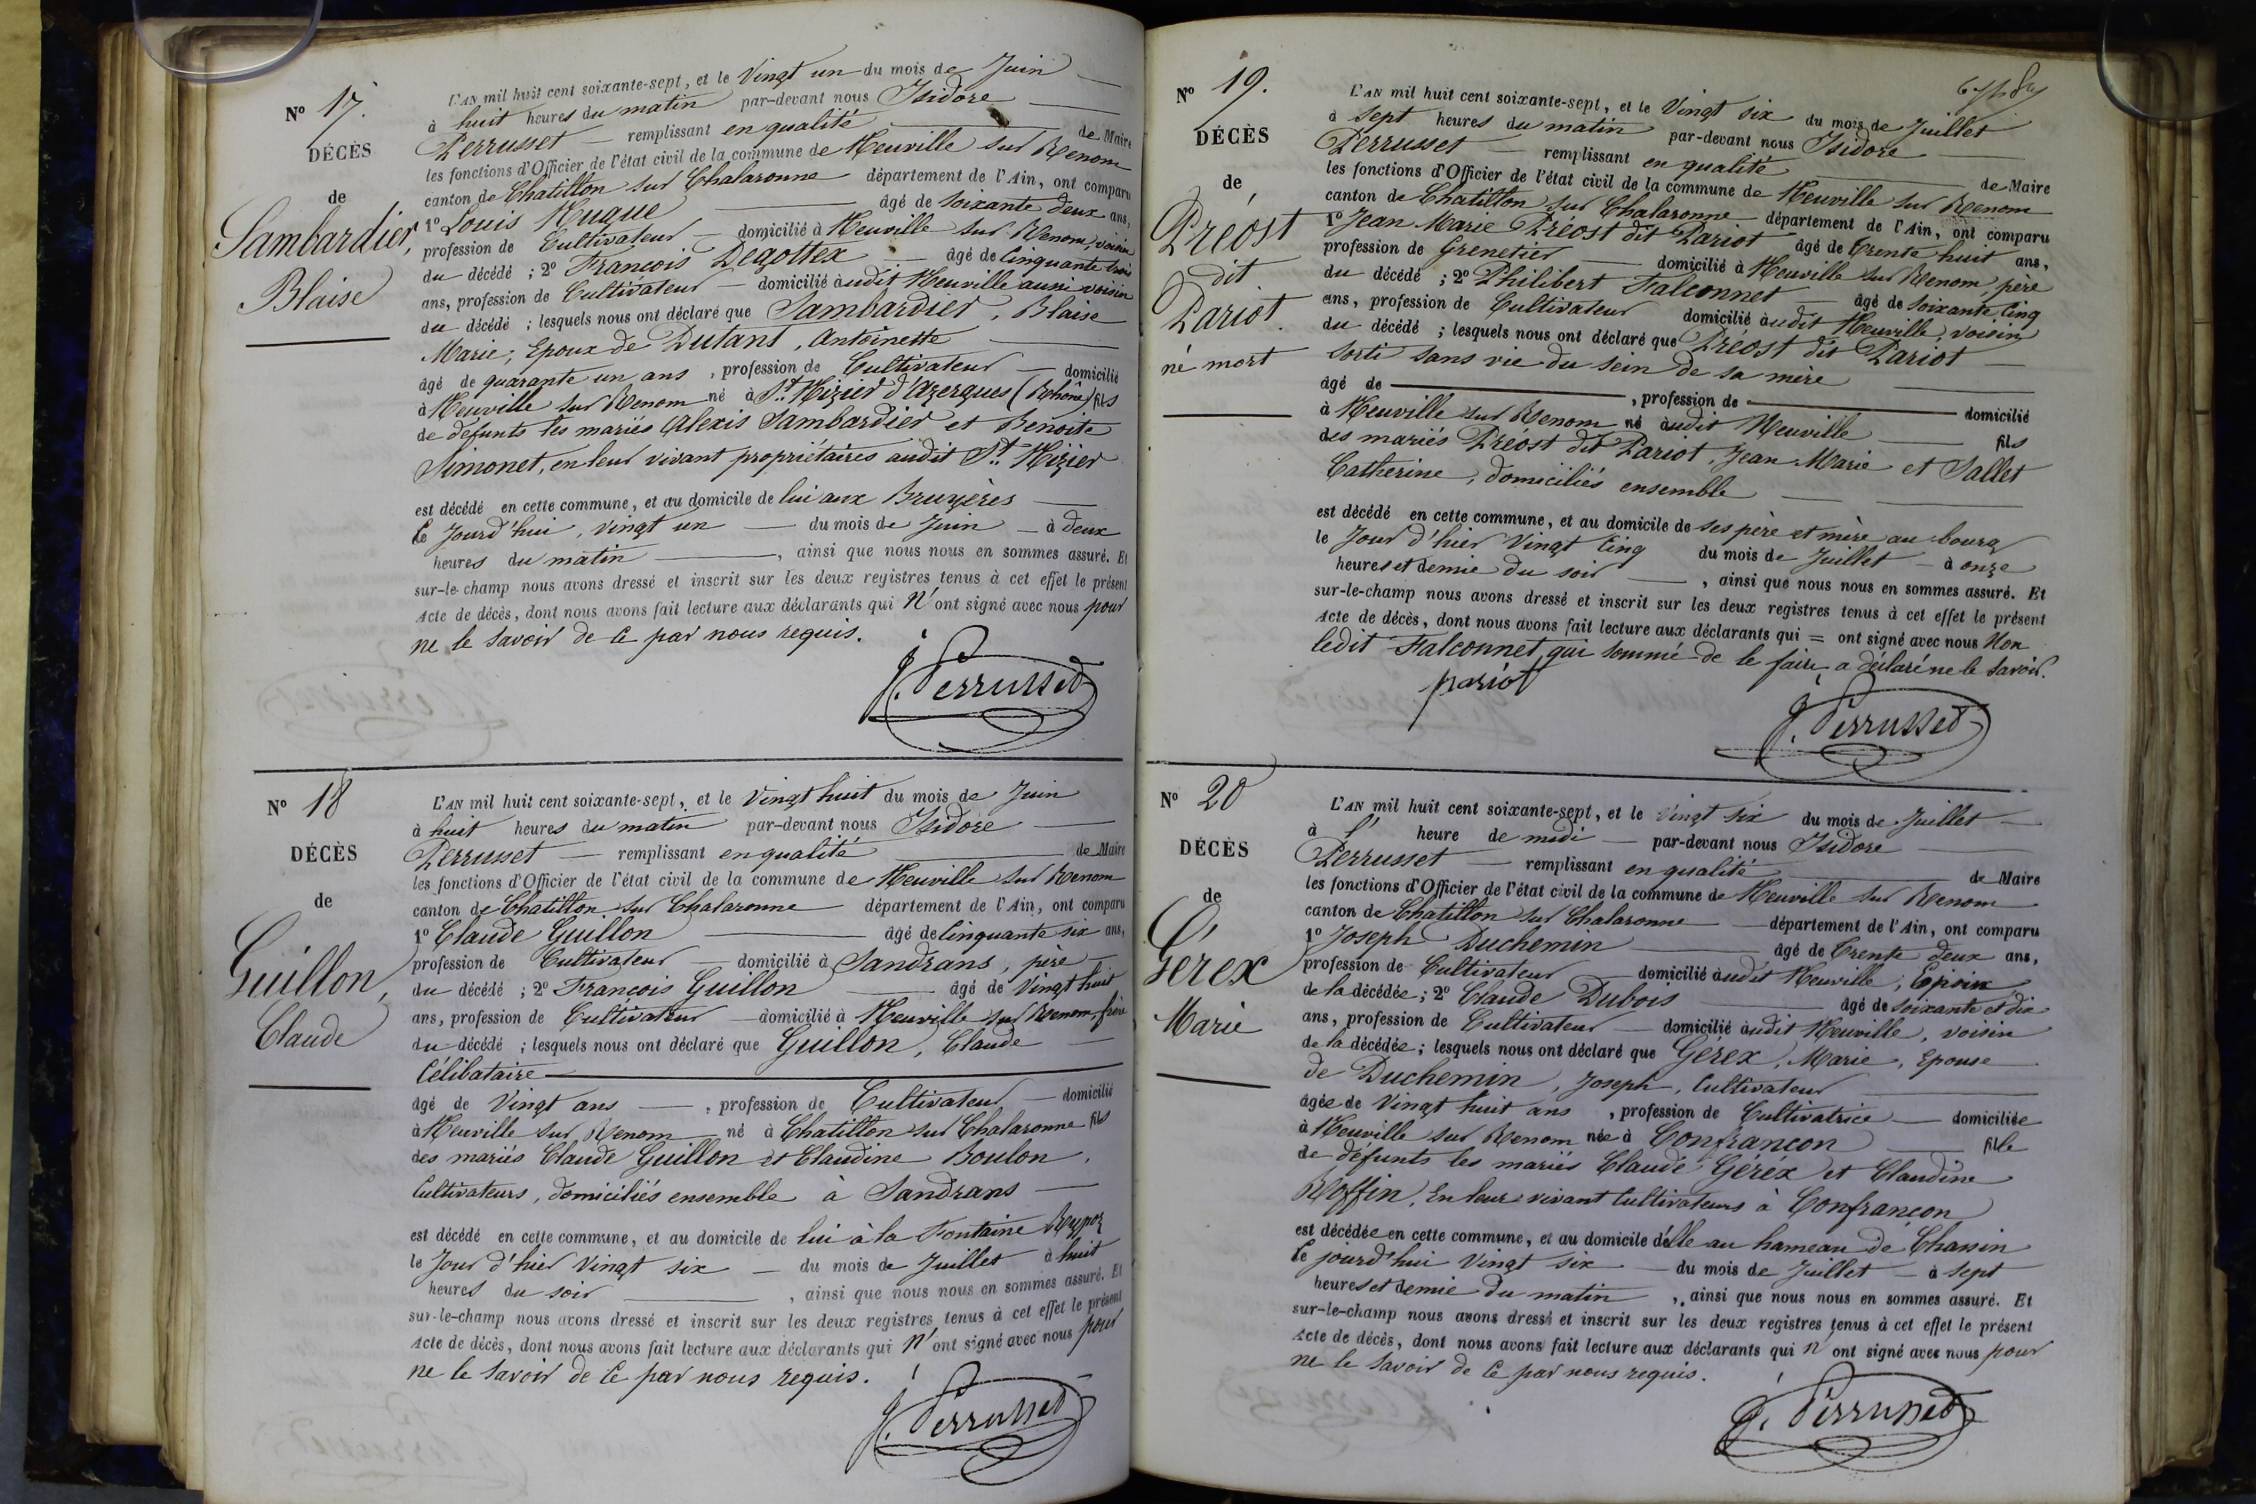 N° 17.
DÉCÈS
de
Sambardier,
Blaise
L'AN mil huit cent soixante-sept, et le Vingt un du mois de Juin
à huit heures du matin par-devant nous Isidore
Perrusset remplissant en qualité de Maire
les fonctions d'Officier de l'état civil de la commune de Neuville sur Renom
canton de Chatillon sur Chalaronne département de l'Ain, ont comparu
1° Louis Hugue âgé de soixante deux ans,
profession de Cultivateur domicilié à Neuville sur Renom, voisin
du décédé ; 2° François Degottex âgé de Cinquante trois
ans, profession de Cultivateur domicilié audit Neuville aussi voisin
du décédé ; lesquels nous ont déclaré que Sambardier, Blaise
Marie, Epoux de Dutant, Antoinette
âgé de quarante un ans, profession de Cultivateur domicilié
à Neuville sur Renom né à St. Nizier d'Azergues (Rhône) fils
de défunts les mariés Alexis Sambardier et Benoite
Simonet, en leur vivant propriétaires audit St. Nizier
est décédé en cette commune, et au domicile de lui aux Bruyères
le Jourd'hui, vingt un du mois de Juin à deux
heures du matin, ainsi que nous nous en sommes assuré. Et
sur-le-champ nous avons dressé et inscrit sur les deux registres tenus à cet effet le présent
Acte de décès, dont nous avons fait lecture aux déclarants qui n'ont signé avec nous pour
ne le savoir de ce par nous requis.
J. Perrusset
N° 18
DÉCÈS
de
Guillon,
Claude
L'AN mil huit cent soixante-sept, et le Vingt huit du mois de Juin
à huit heures du matin par-devant nous Isidore
Perrusset remplissant en qualité de Maire
les fonctions d'Officier de l'état civil de la commune de Neuville sur Renom
canton de Chatillon sur Chalaronne département de l'Ain, ont comparu
1° Claude Guillon âgé de Cinquante six ans,
profession de Cultivateur domicilié à Sandrans, père
du décédé ; 2° François Guillon âgé de Vingt huit
ans, profession de Cultivateur domicilié à Neuville sur Renom, frère
du décédé ; lesquels nous ont déclaré que Guillon, Claude
Célibataire
âgé de Vingt ans, profession de Cultivateur domicilié
à Neuville sur Renom né à Chatillon sur Chalaronne fils
des mariés Claude Guillon et Claudine Boulon,
Cultivateurs, domiciliés ensemble à Sandrans
est décédé en cette commune, et au domicile de lui à la Fontaine
le Jour d'hier Vingt six du mois de Juillet à huit
heures du soir, ainsi que nous nous en sommes assuré. Et
sur-le-champ nous avons dressé et inscrit sur les deux registres tenus à cet effet le présent
Acte de décès, dont nous avons fait lecture aux déclarants qui n'ont signé avec nous pour
ne le savoir de ce par nous requis.
J. Perrusset
N° 19.
DÉCÈS
de
Préost
dit
Pariot.
né mort
L'AN mil huit cent soixante-sept, et le Vingt six du mois de Juillet
à sept heures du matin par-devant nous Isidore
Perrusset remplissant en qualité de Maire
les fonctions d'Officier de l'état civil de la commune de Neuville sur Renom
canton de Chatillon sur Chalaronne département de l'Ain, ont comparu
1° Jean Marie Préost dit Pariot âgé de trente huit ans,
profession de Grenetier domicilié à Neuville sur Renom père
du décédé ; 2° Philibert Falconnet âgé de soixante Cinq
ans, profession de Cultivateur domicilié audit Neuville, voisin
du décédé ; lesquels nous ont déclaré que Préost dit Pariot
sorti sans vie du sein de sa mère
âgé de , profession de domicilié
à Neuville sur Renom né audit Neuville fils
des mariés Préost dit Pariot, Jean Marie et Sallet
Catherine, domiciliés ensemble
est décédé en cette commune, et au domicile de ses père et mère au bourg
le Jour d'hier Vingt Cinq du mois de Juillet à onze
heures et demie du soir, ainsi que nous nous en sommes assuré. Et
sur-le-champ nous avons dressé et inscrit sur les deux registres tenus à cet effet le présent
Acte de décès, dont nous avons fait lecture aux déclarants qui = ont signé avec nous Non
ledit Falconnet, qui sommé de le faire, a déclaré ne le savoir.
pariot
J. Perrusset
N° 20
DÉCÈS
de
Gérex
Marie
L'AN mil huit cent soixante-sept, et le Vingt six du mois de Juillet
à l' heure de midi par-devant nous Isidore
Perrusset remplissant en qualité de Maire
les fonctions d'Officier de l'état civil de la commune de Neuville sur Renom
canton de Chatillon sur Chalaronne département de l'Ain, ont comparu
1° Joseph Duchemin âgé de Trente deux ans,
profession de Cultivateur domicilié audit Neuville, Epoux
de la décédée ; 2° Claude Dubois âgé de soixante et dix
ans, profession de Cultivateur domicilié audit Neuville, voisin
de la décédée ; lesquels nous ont déclaré que Gérex, Marie, Epouse
de Duchemin, Joseph, Cultivateur
âgée de Vingt huit ans, profession de Cultivatrice domiciliée
à Neuville sur Renom née à Confrançon fille
de défunts les mariés Claude Gérex et Claudine
Roffin, En leur vivant Cultivateurs à Confrançon
est décédée en cette commune, et au domicile d'elle au hameau de Chassin
le jourd'hui Vingt six du mois de Juillet à sept
heures et demie du matin, ainsi que nous nous en sommes assuré. Et
sur-le-champ nous avons dressé et inscrit sur les deux registres tenus à cet effet le présent
Acte de décès, dont nous avons fait lecture aux déclarants qui n'ont signé avec nous pour
ne le savoir de ce par nous requis.
J. Perrusset